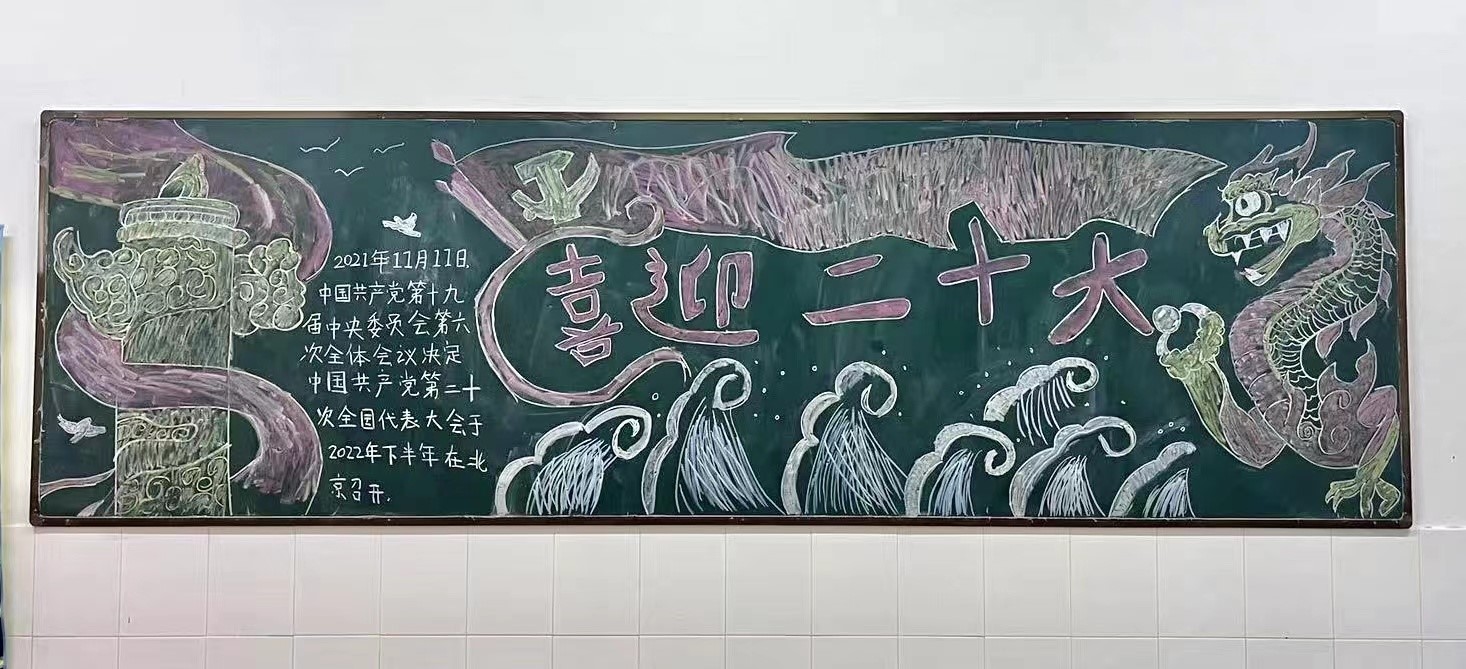 2021年11月11日,
中国共产党第十九
届中央委员会第六
次全体会议决定
中国共产党第二十
次全国代表大会于
2022年下半年在北
京召开.
喜迎二十大